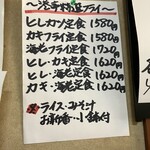 ヒレカツ定食 1580円
カキフライ定食 1580円
海老フライ定食 1920円
ヒレ・カキ定食 1620円
ヒレ・海老定食 1620円
カキ・海老定食 1620円
ライス・みそ汁
お新香・小鉢付